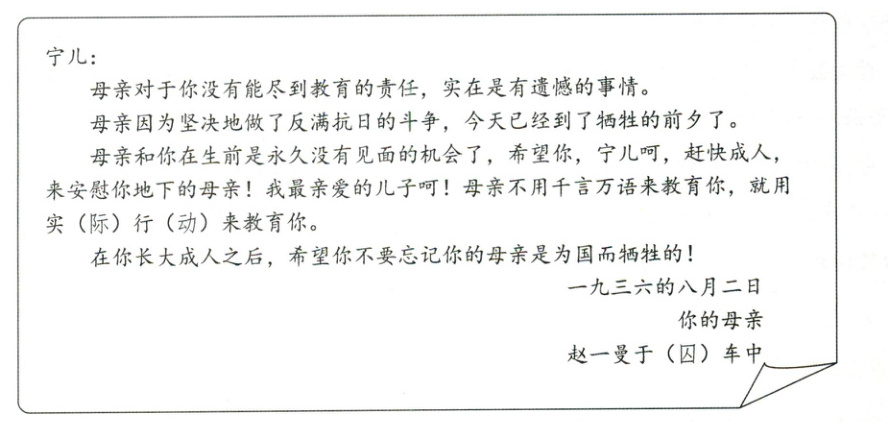 宁儿：
母亲对于你没有能尽到教育的责任，实在是有遗憾的事情。
母亲因为坚决地做了反满抗日的斗争，今天已经到了牺牲的前夕了。
母亲和你在生前是永久没有见面的机会了，希望你，宁儿呵，赶快成人，
来安慰你地下的母亲！我最亲爱的儿子呵！母亲不用千言万语来教育你，就用
实（际）行（动）来教育你。
在你长大成人之后，希望你不要忘记你的母亲是为国而牺牲的！
一九三六的八月二日
你的母亲
赵一曼于（囚）车中